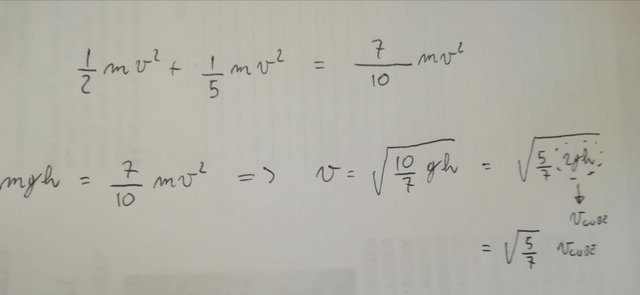 1/2 mv² + 1/5 mv² = 7/10 mv²
mgh = 7/10 mv² => v = √(10/7 gh) = √(5/7 2gh)
↓
v_CUBE
= √(5/7) v_CUBE